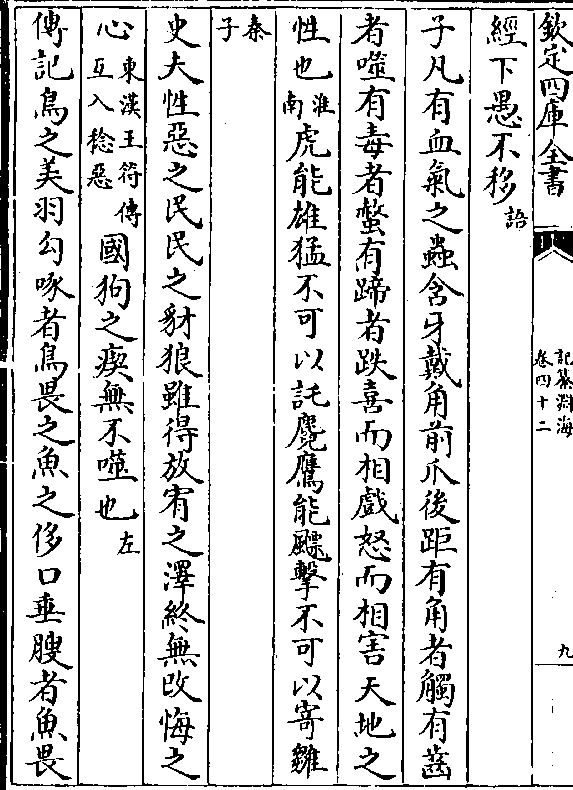 欽定四庫全書
記纂淵海
卷四十二
九
經下愚不移語
子凡有血氣之蟲含牙戴角前爪後距有角者觸有齒
者噬有毒者螫有蹄者趹喜而相戲怒而相害天地之
性也淮南虎能雄猛不可以託麑鷹能飄擊不可以寄雛
秦子
史夫性惡之民民之豺狼雖得放宥之澤終無改悔之
心東漢王符傳互入稔惡國狗之瘈無不噬也左
傳記鳥之美羽勾啄者鳥畏之魚之侈口垂腴者魚畏